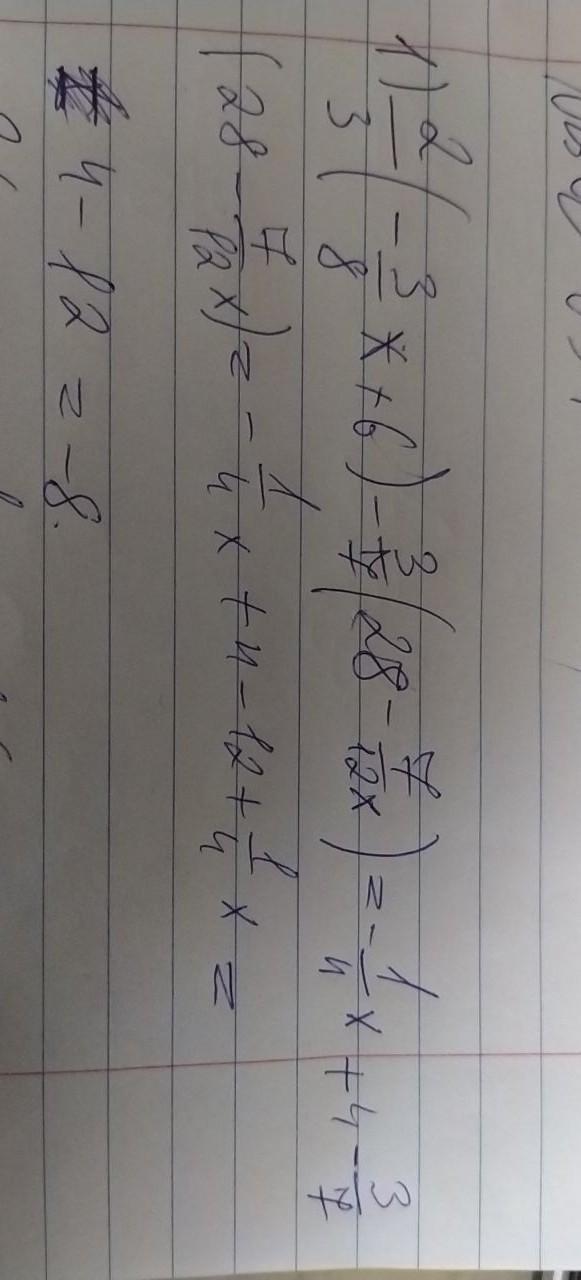 1) 2/3 (-3/8 x + 6) - 3/7 (28 - 7/12 x) = -1/4 x + 4 - 3/7
(28 - 7/12 x) = -1/4 x + 4 - 12 + 1/4 x =
4 - 12 = -8.